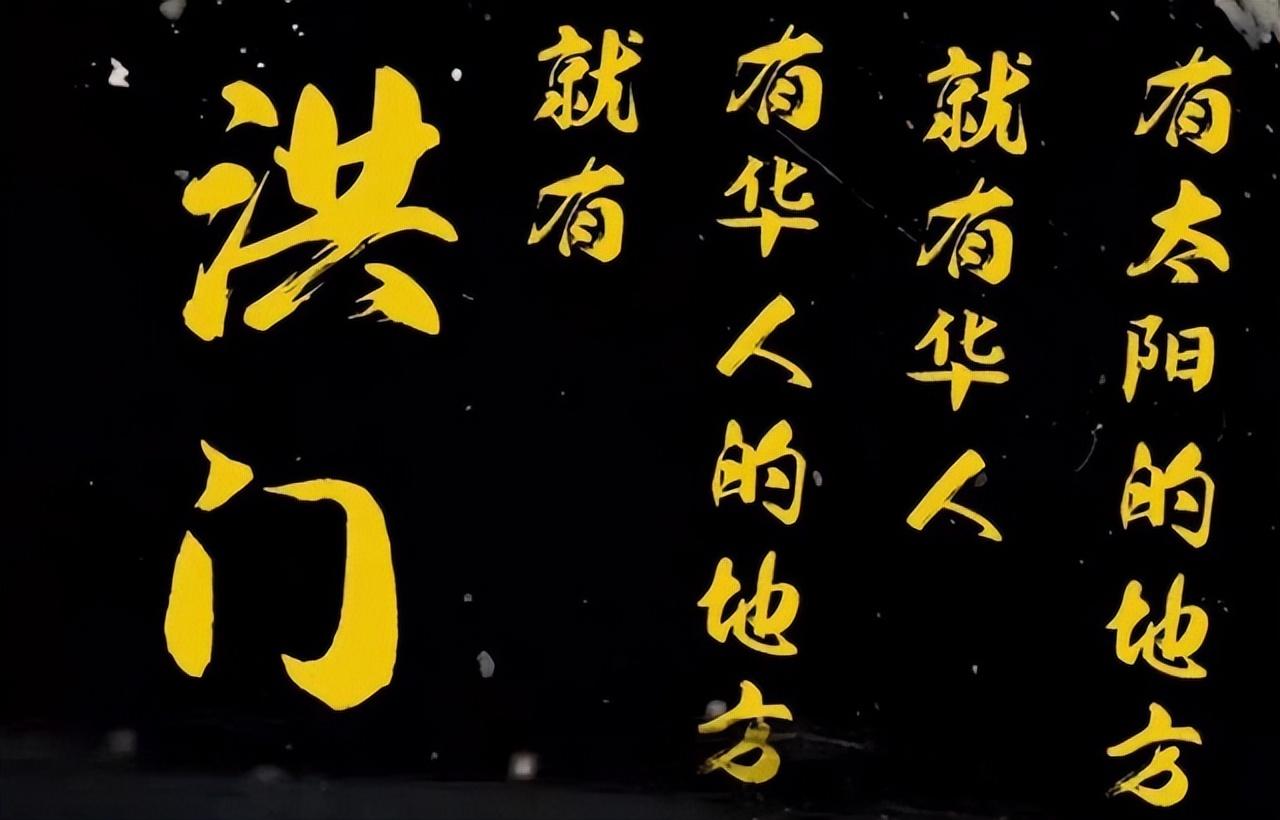 有太阳的地方
就有华人
有华人的地方
就有
洪门